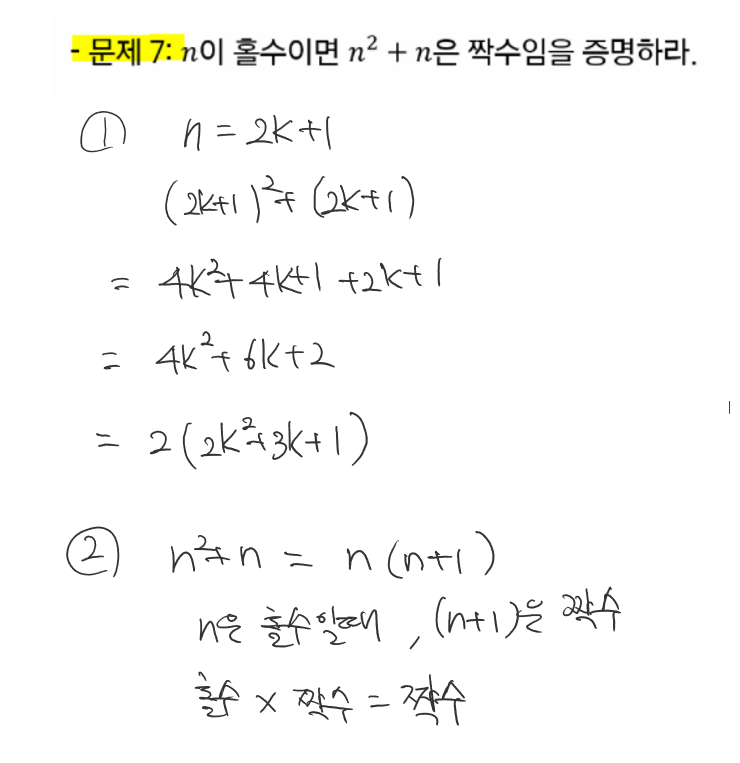 - 문제 7: n이 홀수이면 n² + n은 짝수임을 증명하라.
① n = 2k+1
(2k+1)²+(2k+1)
= 4k²+4k+1+2k+1
= 4k²+6k+2
= 2(2k²+3k+1)
② n²+n = n(n+1)
n은 홀수일때, (n+1)은 짝수
홀수 × 짝수 = 짝수